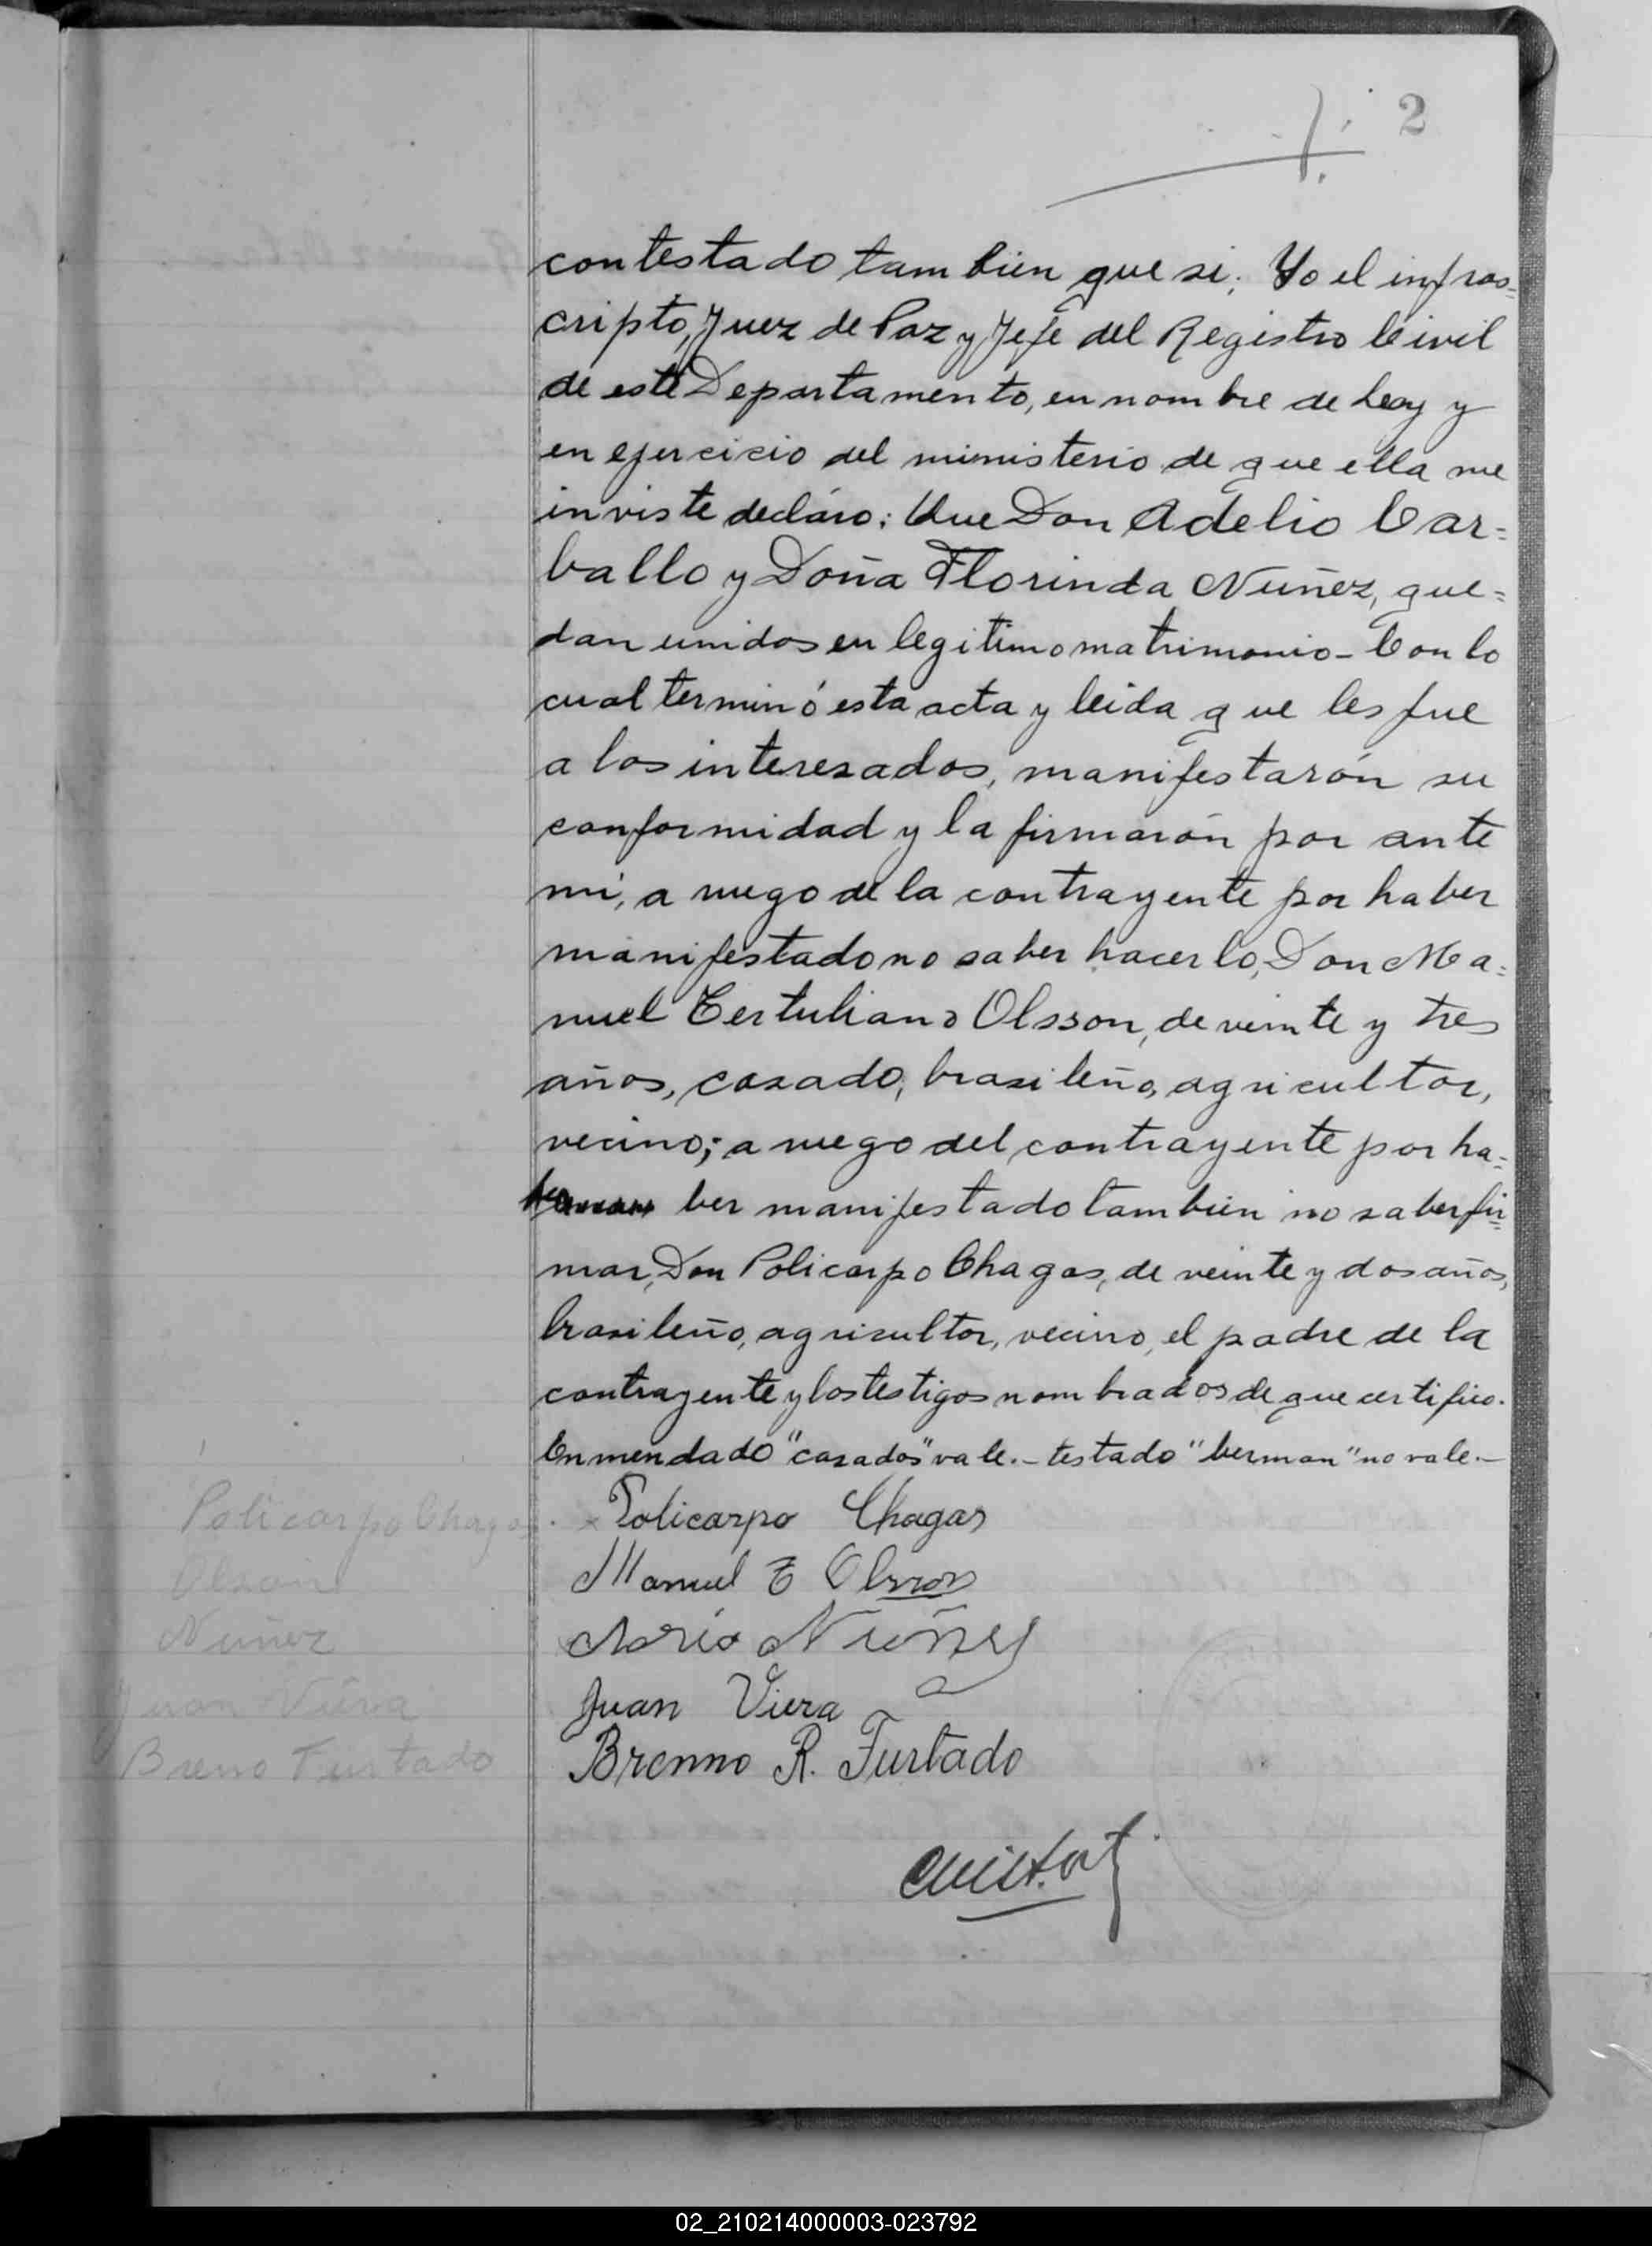 2
contestado tambien que si; Yo el infras=
cripto, Juez de Paz y Jefe del Registro Civil
de este Departamento, en nombre de Ley y
en ejercicio del ministerio de que ella me
inviste declaro: Que Don Adelio Car=
ballo y Doña Florinda Nuñez, que=
dan unidos en legitimo matrimonio- Con lo
cual terminó esta acta y leida que les fue
a los interesados, manifestarón su
conformidad y la firmarón por ante
mi, a ruego de la contrayente por haber
manifestado no saber hacerlo, Don Ma=
nuel Tertuliano Olsson, de veinte y tres
años, casado, brasileño, agricultor,
vecino; a ruego del contrayente por ha=
ber manifestado tambien no saber fir=
mar, Don Policarpo Chagas, de veinte y dos años,
brasileño, agricultor, vecino, el padre de la
contrayente y los testigos nombrados de que certifico.
Enmendado "casados" vale.- testado "berman" no vale.-
Policarpo Chagas
Policarpo Chagas
Olson
Manuel T Olsson
Nuñez
Nuñez
Juan Viera
Juan Viera
Breno Furtado
Brenno R. Furtado
02_210214000003-023792